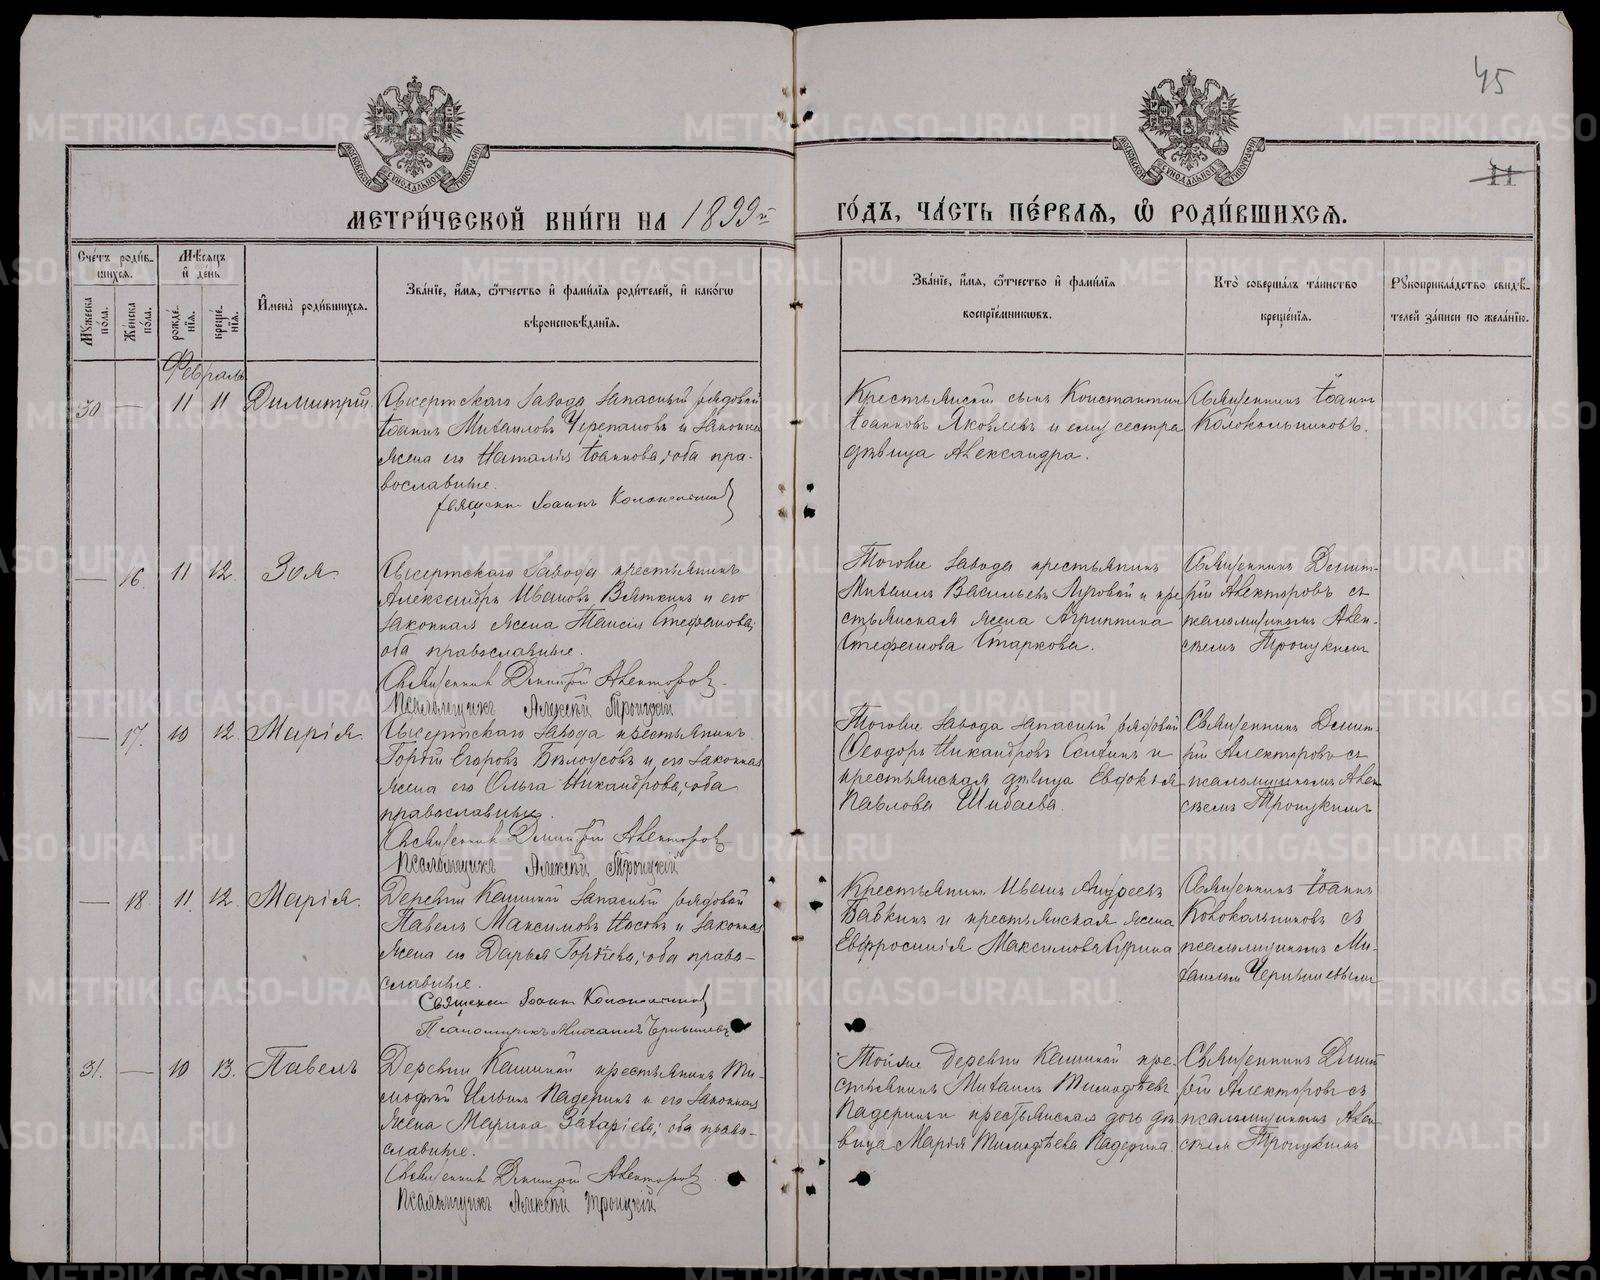 45
11
МЕТРИ́ЧЕСКОЙ КНИ́ГИ НА 1899й
ГО́ДЪ, ЧА́СТЬ ПЕ́РВАЯ, Ѡ҆ РОДИ́ВШИХСЯ.
Сче́тъ роди́в-
шихся.
Мꙋ́жеска по́ла.
Же́нска по́ла.
Мѣ́сяцъ
и҆ де́нь
рожде́-
нїя.
креще́-
нїя.
И҆мена̀ роди́вшихся.
Зва́нїе, и҆́мя, ѻ҆́тчество и҆ фамилїя роди́телей, и҆ како́гѡ
вѣроисповѣ́данїя.
Зва́нїе, и҆́мя, ѻ҆́тчество и҆ фами́лїя
воспрїе́мниковъ.
Кто̀ соверша́лъ та́инство
креще́нїя.
Рꙋкоприкла́дство свидѣ́-
телей за́писи по жела́нїю.
Февраль
30 — 11 11 Димитрій.
Сысертскаго завода запасный рядовой
Іоаннъ Михаиловъ Черепановъ и законная
жена его Наталія Іоаннова, оба пра-
вославные.
Священникъ Іоаннъ Колокольниковъ
Крестьянскій сынъ Константинъ
Іоанновъ Яковлевъ и ему сестра
дѣвица Александра.
Священникъ Іоаннъ
Колокольниковъ.
— 16. 11 12. Зоя.
Сысертскаго завода крестьянинъ
Александръ Ивановъ Вяткинъ и его
законная жена Таисія Стефанова,
оба православные.
Священникъ Димитрій Алекторовъ
Псаломщикъ Алексѣй Троицкій
Тогоже завода крестьянинъ
Михаилъ Васильевъ Луговой и кре
стьянская жена Агриппина
Стефанова Старкова.
Священникъ Димит-
рій Алекторовъ съ
псаломщикомъ Алек-
сѣемъ Троицкимъ
— 17. 10 12. Марія.
Сысертскаго завода крестьянинъ
Гордій Егоровъ Бѣлоусовъ и его законная
жена его Ольга Никандрова, оба
православные.
Священникъ Димитрій Алекторовъ
Псаломщикъ Алексѣй Троицкій
Тогоже завода запасный рядовой
Ѳеодоръ Никандровъ и
крестьянская дѣвица Евдокія
Павлова Шибаева.
Священникъ Димит-
рій Алекторовъ съ
псаломщикомъ Алек
сѣемъ Троицкимъ
— 18 11. 12. Марія.
Деревни Кашиной запасный рядовой
Павелъ Максимовъ Носовъ и законная
жена его Дарья Гордѣева, оба право-
славные.
Священникъ Іоаннъ Колокольниковъ
Псаломщикъ Михаилъ Чернышевъ
Крестьянинъ Иванъ Андреевъ
Бабкинъ и крестьянская жена
Евфросинія Максимова Сурина
Священникъ Іоаннъ
Колокольниковъ съ
псаломщикомъ Ми-
хаиломъ Чернышевымъ
31. — 10 13. Павелъ
Деревни Кашиной крестьянинъ Ти-
моѳей Ильинъ Кадеринъ и его законная
жена Марина Захаріева, оба право-
славные.
Священникъ Димитрій Алекторовъ
Псаломщикъ Алексѣй Троицкій
Тойже деревни Кашиной кре-
стьянинъ Михаилъ Тимоѳѣевъ
Кадеринъ и крестьянская дочь дѣ-
вица Марія Тимоѳѣева Кадерина.
Священникъ Димит
рій Алекторовъ съ
псаломщикомъ Алек-
сѣемъ Троицкимъ
METRIKI.GASO-URAL.RU